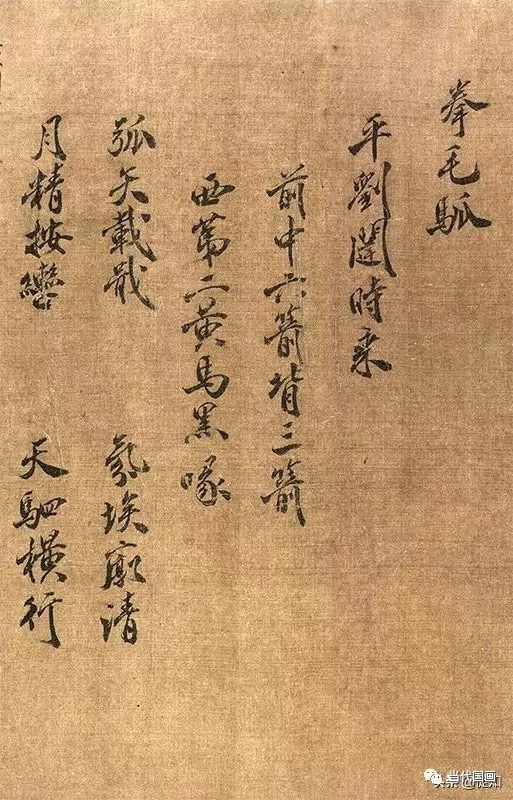 拳毛騧
平劉闥時乘
前中六箭背三箭
西第二黃馬黑喙
弧矢載戢 氛埃廓清
月精按轡 天駟橫行
当代国画